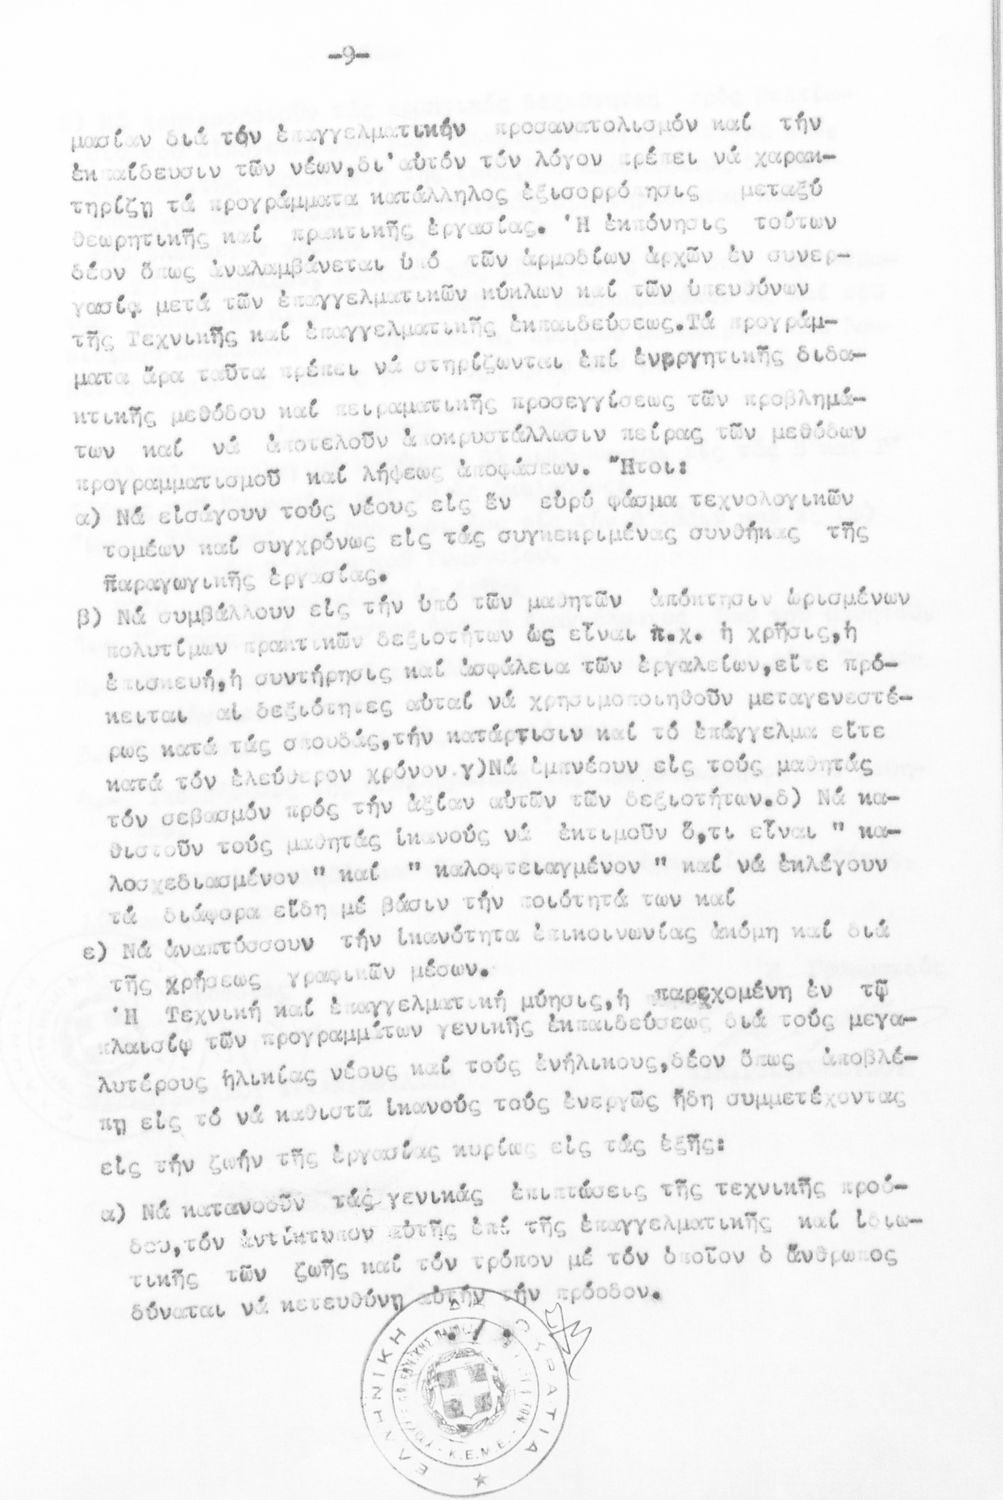 -9-
μασίαν διά τόν ἐπαγγελματικήν προσανατολισμόν καί τήν
ἐκπαίδευσιν τῶν νέων,δι'αὐτόν τόν λόγον πρέπει νά χαρακ-
τηρίζῃ τά προγράμματα κατάλληλος ἐξισορρόπησις μεταξύ
θεωρητικῆς καί πρακτικῆς ἐργασίας. Ἡ ἐκπόνησις τούτων
δέον ὅπως ἀναλαμβάνεται ὑπό τῶν ἁρμοδίων ἀρχῶν ἐν συνερ-
γασίᾳ μετά τῶν ἐπαγγελματικῶν κύκλων καί τῶν ὑπευθύνων
τῆς Τεχνικῆς καί ἐπαγγελματικῆς ἐκπαιδεύσεως.Τά προγράμ-
ματα ἄρα ταῦτα πρέπει νά στηρίζωνται ἐπί ἐνεργητικῆς διδα-
κτικῆς μεθόδου καί πειραματικῆς προσεγγίσεως τῶν προβλημά-
των καί νά ἀποτελοῦν ἀποκρυστάλλωσιν πείρας τῶν μεθόδων
προγραμματισμοῦ καί λήψεως ἀποφάσεων. Ἤτοι:
α) Νά εἰσάγουν τούς νέους εἰς ἕν εὐρύ φάσμα τεχνολογικῶν
τομέων καί συγχρόνως εἰς τάς συγκεκριμένας συνθήκας τῆς
παραγωγικῆς ἐργασίας.
β) Νά συμβάλλουν εἰς τήν ὑπό τῶν μαθητῶν ἀπόκτησιν ὡρισμένων
πολυτίμων πρακτικῶν δεξιοτήτων ὡς εἶναι π.χ. ἡ χρῆσις,ἡ
ἐπισκευή,ἡ συντήρησις καί ἀσφάλεια τῶν ἐργαλείων,εἴτε πρό-
κειται αἱ δεξιότητες αὐταί νά χρησιμοποιηθοῦν μεταγενεστέ-
ρως κατά τάς σπουδάς,τήν κατάρτισιν καί τό ἐπάγγελμα εἴτε
κατά τόν ἐλεύθερον χρόνον.γ)Νά ἐμπνέουν εἰς τούς μαθητάς
τόν σεβασμόν πρός τήν ἀξίαν αὐτῶν τῶν δεξιοτήτων.δ) Νά κα-
θιστοῦν τούς μαθητάς ἱκανούς νά ἐκτιμοῦν ὅ,τι εἶναι " κα-
λοσχεδιασμένον " καί " καλοφτειαγμένον " καί νά ἐκλέγουν
τά διάφορα εἴδη μέ βάσιν τήν ποιότητά των καί
ε) Νά ἀναπτύσσουν τήν ἱκανότητα ἐπικοινωνίας ἀκόμη καί διά
τῆς χρήσεως γραφικῶν μέσων.
Ἡ Τεχνική καί ἐπαγγελματική μύησις,ἡ παρεχομένη ἐν τῷ
πλαισίῳ τῶν προγραμμάτων γενικῆς ἐκπαιδεύσεως διά τούς μεγα-
λυτέρους ἡλικίας νέους καί τούς ἐνήλικους,δέον ὅπως ἀποβλέ-
πῃ εἰς τό νά καθιστᾶ ἱκανούς τούς ἐνεργῶς ἤδη συμμετέχοντας
εἰς τήν ζωήν τῆς ἐργασίας κυρίως εἰς τάς ἑξῆς:
α) Νά κατανοοῦν τάς γενικάς ἐπιπτώσεις τῆς τεχνικῆς προό-
δου,τόν ἀντίκτυπον αὐτῆς ἐπί τῆς ἐπαγγελματικῆς καί ἰδιω-
τικῆς τῶν ζωῆς καί τόν τρόπον μέ τόν ὁποῖον ὁ ἄνθρωπος
δύναται νά κατευθύνῃ αὐτήν τήν πρόοδον.
./.
ΕΛΛΗΝΙΚΗ ΔΗΜΟΚΡΑΤΙΑ
Κ.Ε.Μ.Ε.